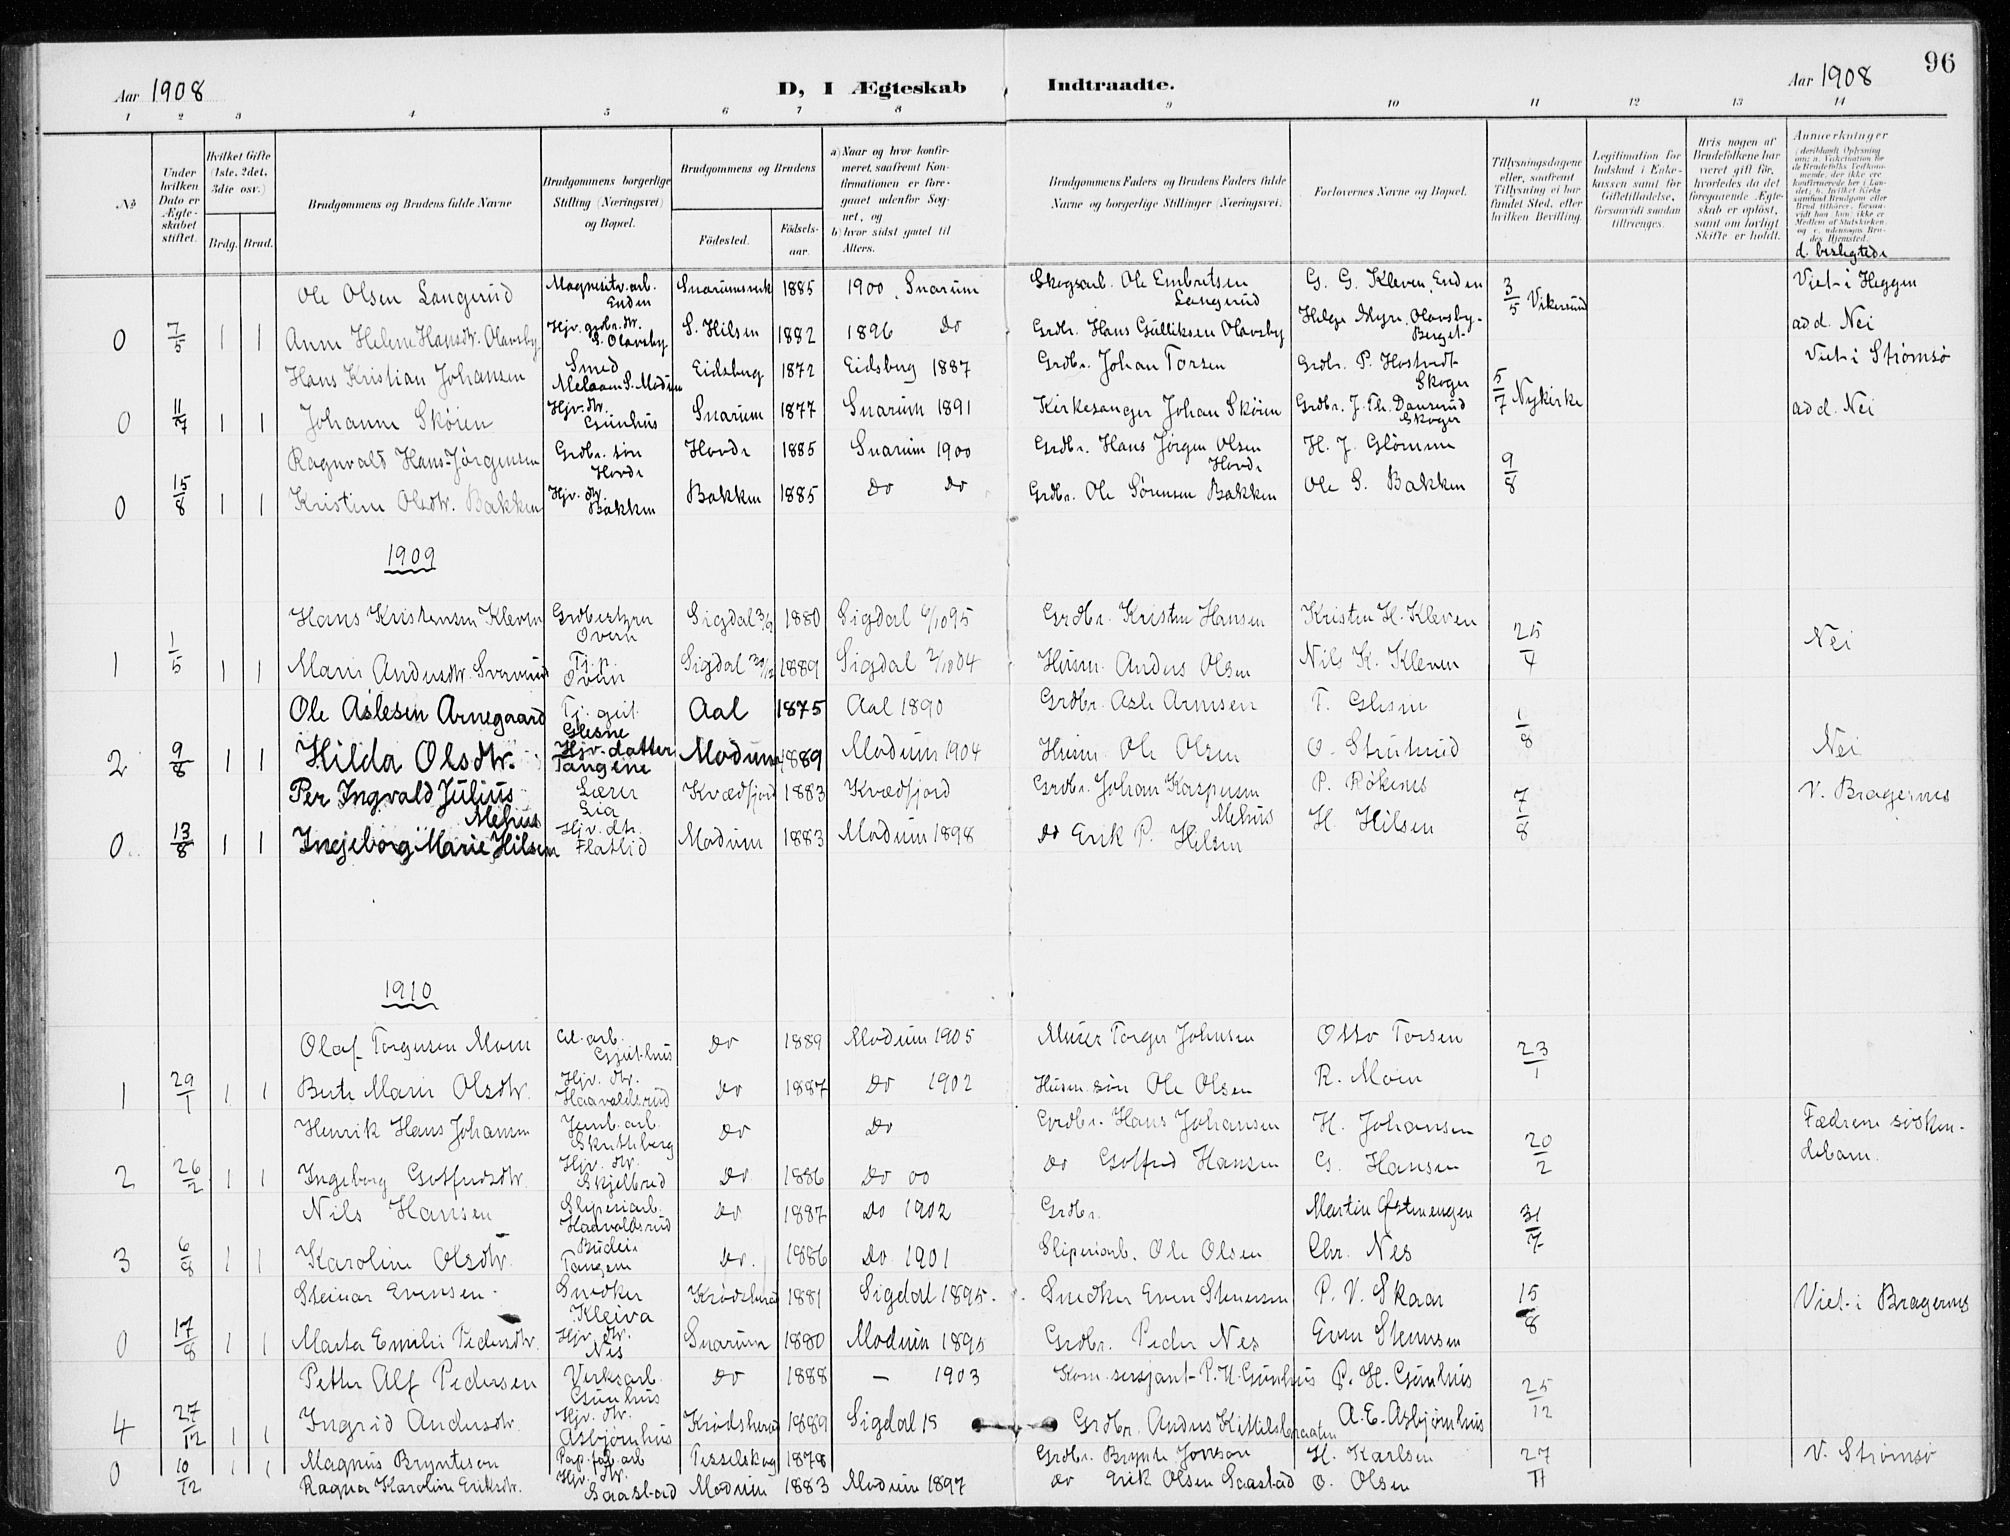 96
Aar 1908 D, I Ægteskab Indtraadte. Aar 1908
1 2 3 4 5 6 7 8 9 10 11 12 13 14
No
Under hvilken Dato er Ægteskabet stiftet.
Hvilket Gifte (1ste, 2det, 3die osv.)
Brdg. Brud.
Brudgommens og Brudens fulde Navne
Brudgommens borgerlige Stilling (Næringsvei) og Bopæl.
Brudgommens og Brudens
Fødested. Fødselsaar.
a) Naar og hvor konfirmeret, saafremt Konfirmationen er foregaaet udenfor Sognet, og
b) hvor sidst gaaet til Alters.
Brudgommens Faders og Brudens Faders fulde Navne og borgerlige Stillinger (Næringsvei).
Forlovernes Navne og Bopæl.
Tillysningsdagene eller, saafremt Tillysning ei har fundet Sted, efter hvilken Bevilling.
Legitimation for Indskud i Enkekassen samt for Giftetilladelse, forsaavidt saadan tiltrænges.
Hvis nogen af Brudefolkene har været gift før, hvorledes da det foregaaende Ægteskab er opløst, samt om lovligt Skifte er holdt.
Anmerkninger
d. beslægtede
Ole Olsen Langerud Magnesitv. arb. Enden Snarumsverk 1885 1900, Snarum Skogsarb. Ole Embretsen Langerud G. G. Kleven, Enden 3/5 Vikersund Viet i Heggen
0 7/5 1 1 Anne Helene Hansdtr. Olavsby Hjv. grdbr. dtr. S. Olavsby S. Hilsen 1882 1896 Do Grdbr. Hans Gulliksen Olavsby Helge Myre, Olavsby-Berget ad d. Nei
Hans Kristian Johansen Smed Melaaen S. Modum Eidsberg 1872 Eidsberg 1887 Grdbr. Johan Torsen Grdbr. P. Hostvedt Skoger 5/7 Nykirke Viet i Strømsø
0 11/7 1 1 Johanne Skøien Hjv. dtr. Gunhus Snarum 1877 Snarum 1891 Kirkesanger Johan Skøien Grdbr. J. Th. Danserud Skoger ad d. Nei
Ragnvald Hans-Jørgensen Grdbr. søn Hovde Hovde 1885 Snarum 1900 Grdbr. Hans Jørgen Olsen Hovde H. J. Glømme 9/8
0 15/8 1 1 Kristine Olsdtr. Bakken Hjv. dtr. Bakken Bakken 1885 Do Do Grdbr. Ole Sørensen Bakken Ole S. Bakken
1909
Hans Kristensen Kleven Grdbestyrer Oven Sigdal 3/9 1880 Sigdal 6/10 95 Grdbr. Kristen Hansen Kristen H. Kleven 25/4 Nei
1 1/5 1 1 Marie Andersdtr. Tj. p. Oven Sigdal 1889 Sigdal 2/10 04 Husm. Anders Olsen Nils K. Kleven
Ole Aslesen Arnegaard Tj. gut. Glesne Aal 1875 Aal 1890 Grdbr. Asle Arnesen T. Glesne 1/8
2 9/8 1 1 Hilda Olsdtr. Hjv. datter Tangene Modum 1889 Modum 1904 Husm. Ole Olsen O. Strutrud Nei
Per Ingvald Julius Mehus Lærer Lia Kvædfjord 1883 Kvædfjord Grdbr. Johan Kaspersen Mehus P. Røkenes 7/8 V. Bragernes
0. 13/8 1 1 Ingeborg Marie Hilsen Hjv. dtr. Flatlid Modum 1883 Modum 1898 do Erik P. Hilsen H. Hilsen
1910
Olaf Torgersen Moen Gunhus Do 1889 Modum 1905 Murer Torger Johnsen Otto Torsen 23/1
1 29/1 1 1 Berte Marie Olsdtr. Hjv. dtr. Haavaldsrud Do 1887 Do 1902 Husm. søn Ole Olsen R. Moen
Henrik Hans Johansen Jernb. arb. Skutteberg Do Do Grdbr. Hans Johansen H. Johansen 20/2 Fædrene søskendebarn.
2 26/2 1 1 Ingeborg Gotfredsdtr. Hjv. dtr. Skjelbred Do 1886 Do 00 Do Gotfred Hansen G. Hansen
Nils Hansen Sliperiarb. Haavaldsrud Do 1887 Do 1902 Grdbr. Martin Østmengen 31/7
3 6/8 1 1 Karoline Olsdtr. Budeie Tangen Do. 1886 Do 1901 Sliperiarb. Ole Olsen Chr. Nes
Steinar Evensen Snedker Kleiva Krødsherad 1881 Sigdal 1895. Snedker Even Stenersen P. V. Skaar 15/8 Viet i Bragernes
0 17/8 1 1 Marta Emilie Pedersdtr. Hjv. dtr. Nes Snarum 1880 Modum 1895 Grdbr. Peder Nes Even Stenersen
Petter Alf Pedersen Verksarb. Gunhus Do 1888 — 1903 Kom. sersjant P. H. Gunhus P. H. Gunhus 25/12
4 27/12 1 1 Ingrid Andersdtr. Hjv. dtr. Asbjørnhus Krødsherad 1889 Sigdal 15 Grdbr. Anders Kittilsbraaten A. E. Asbjørnhus
Magnus Brynteson Pap. fab. arb Tisselskog 1878 Grdbr. Brynte Jonsson H. Karlsen 27/11 V. Strømsø
0 10/12 1 1 Ragna Karoline Eriksdtr. Hjv. dtr. Saastad Modum 1883 Modum 1897 do Erik Olsen Saastad O. Olsen